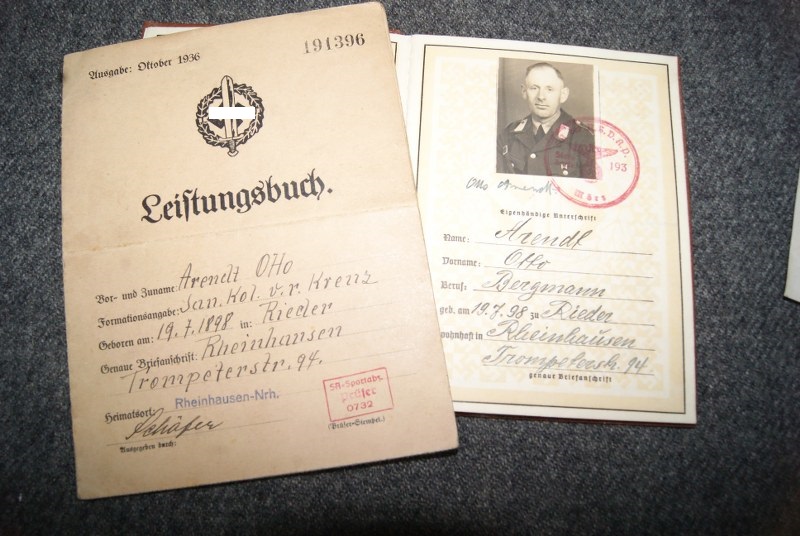 Ausgabe: Oktober 1936
191396
Leistungsbuch.
Vor- und Zuname: Arendt Otto
Formationsangabe: San. Kol. v. r. Kreuz
Geboren am: 19.7.1898 in: Rieder
Genaue Briefanschrift: Rheinhausen
Trompeterstr. 94.
Heimatsort: Rheinhausen-Nrh.
Schäfer
Ausgegeben durch:
SA-Sportabz.
Prüfer
0732
(Prüfer-Stempel.)
N.S.D.A.P.
193
Otto Arendt.
Eigenhändige Unterschrift
Name: Arendt
Vorname: Otto
Beruf: Bergmann
geb. am 19.7.98 zu Rieder
wohnhaft in Rheinhausen
94
genaue Briefanschrift